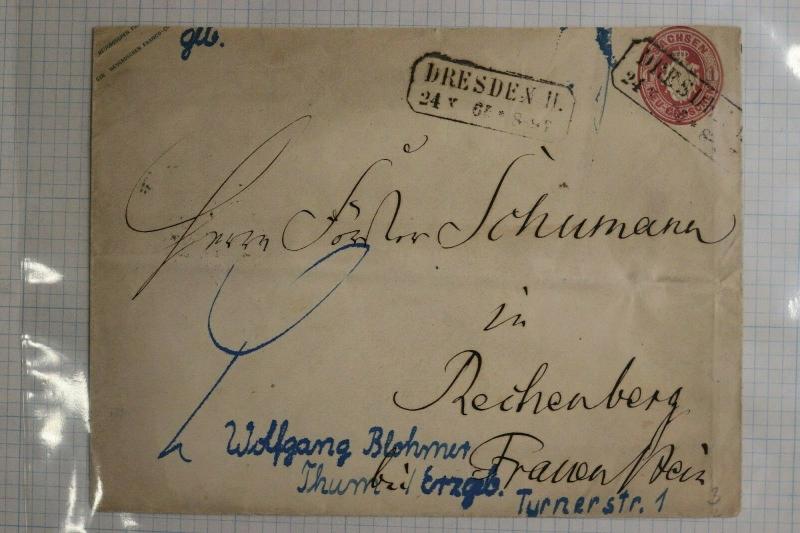 glb.
DRESDEN II.
24 V 65
SACHSEN
DRESD
24
Herrn Förster Schumann
in
Rechenberg
bei Frauenstein
Wolfgang Blohmer
Thum / Erzgb.
Turnerstr. 1